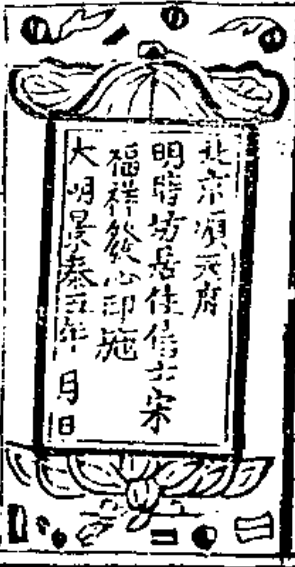 北京順天府
明時坊居住信士宋
福祥發心印施
大明景泰五年 月 日